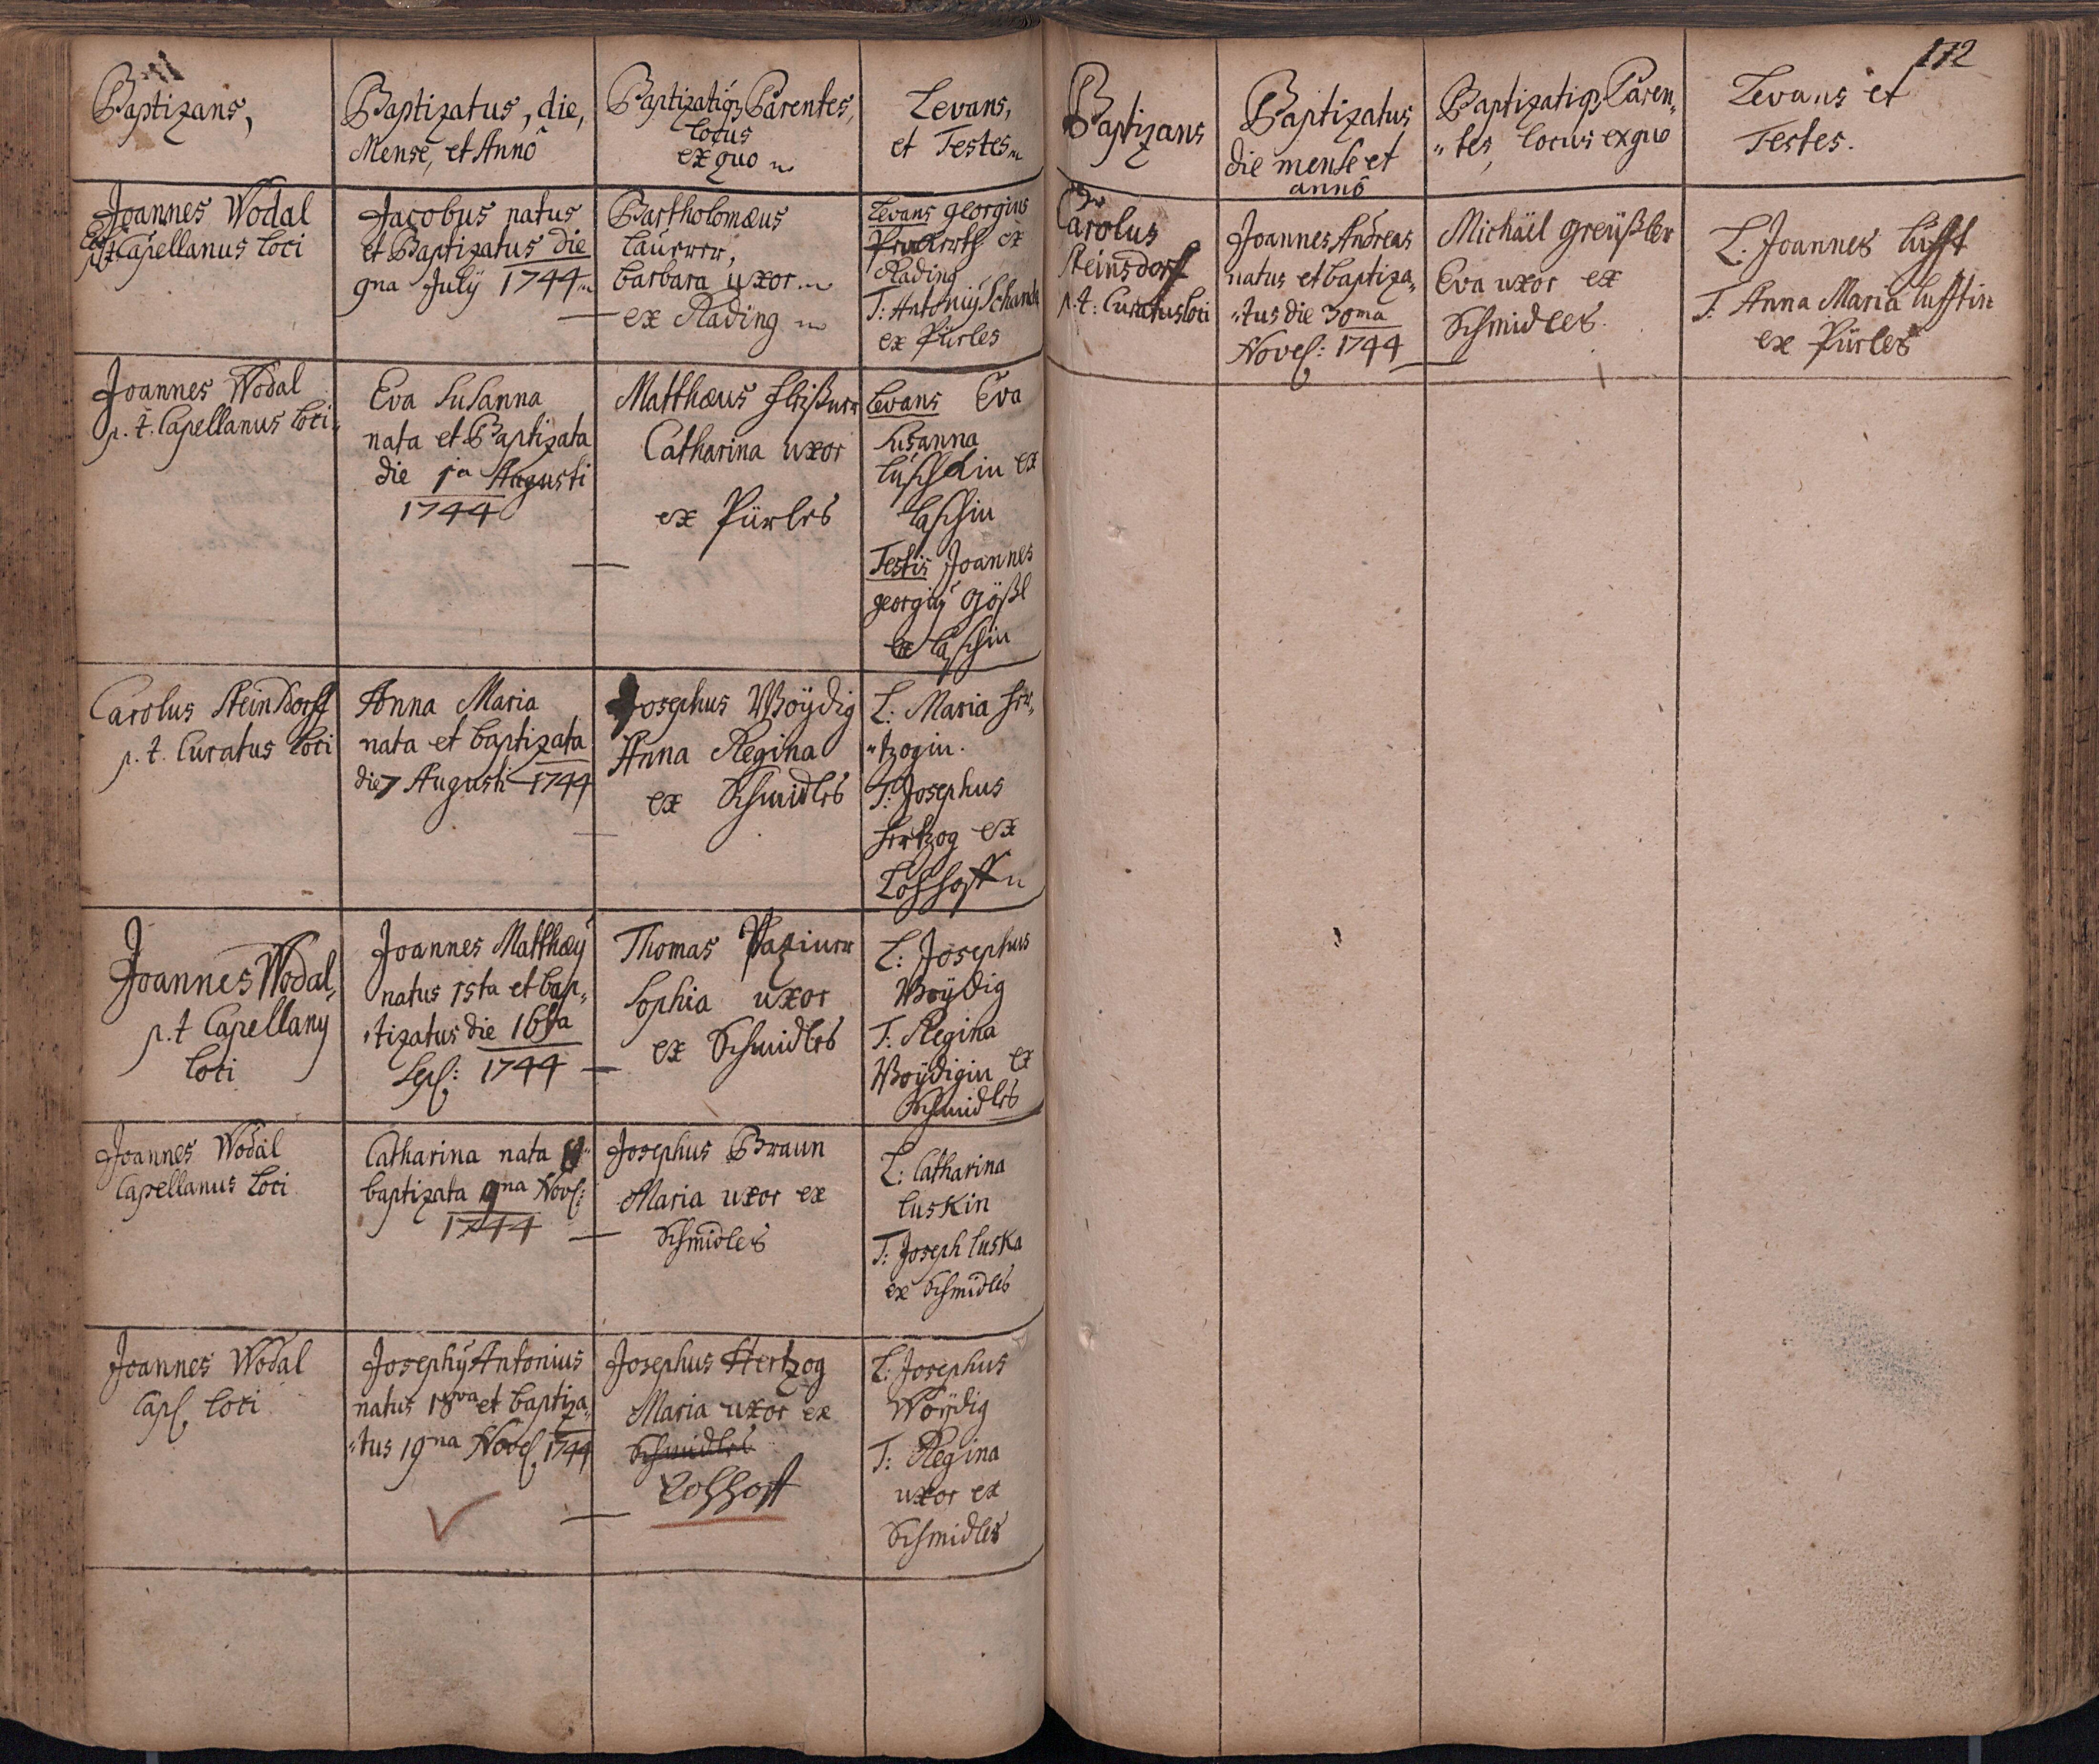 Baptizans,
Baptizatus, die,
Mense, et Anno
Baptizatiq, Parentes,
locus
ex quo
Levans,
et Testes
Joannes Wodal
Capellanus loci
Jacobus natus
et Baptizatus die
9na July 1744
Bartholomæus
barbara uxor
ex Rading
Levans georgius
ex
Rading
T: Antoniy
ex Pürles
Joannes Wodal
p. t. Capellanus loci
Eva Susanna
nata et Baptizata
die 1a Augusti
1744
Matthæus
Catharina uxor
ex Pürles
Levans Eva
Susanna
ex
laschin
Testis Joannes
georgiy Gößl
ex laschin
Carolus SteinDorff
p. t. Curatus loci
Anna Maria
nata et baptizata
die 7 Augusti 1744
Josephus Woÿdig
Anna Regina
ex Schmidles
L: Maria her„
„tzogin.
T: Josephus
hertzog ex
Lohhoff
Joannes Wodal,
p. t Capellany
loci
Joannes Matthæy
natus 15ta et bap„
„tizatus die 16ta
Sep: 1744
Thomas
Sophia uxor
ex Schmidles
L: Josephus
Woÿdig
T: Regina
Woÿdigin ex
Schmidles
Joannes Wodal
Capellanus loci
Catharina nata
baptizata 9na Nov:
1744
Josephus Braun
Maria uxor ex
Schmidles
L: Catharina
luskin
T: Joseph luska
ex Schmidles
Joannes Wodal
Cap. loci
Josephy Antonius
natus 18va et baptiza„
„tus 19na Nove. 1744
Josephus Hertzog
Maria uxor ex
Schmidles
Lohhoff
L: Josephus
Woÿdig
T: Regina
uxor ex
Schmidles
172
Baptizans
Baptizatus
die mense et
anno
Baptizatiq, Paren„
„tes, locus ex quo
Levans et
Testes.
Carolus
Steinsdorf
p. t: Curatus loci
Joannes Andreas
natus et baptiza„
„tus die 30ma
Nove: 1744
Michäel greüßler
Eva uxor ex
Schmidles.
L: Joannes lufft
T: Anna Maria lufftin
ex Pürles